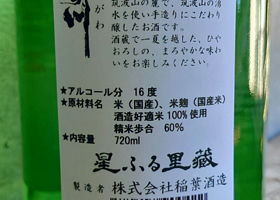 川
がわ
筑波山の麓で、筑波山の湧
水を使い手造りにこだわり
醸したお酒です。
酒蔵で一夏を越した、ひや
おろしの、まろやかな味わ
いをお楽しみ下さい。
★アルコール分 16度
★原材料名 米(国産)、米麹(国産米)
酒造好適米100%使用
精米歩合 60%
★内容量 720ml
星ふる里蔵
製造者 株式会社稲葉酒造